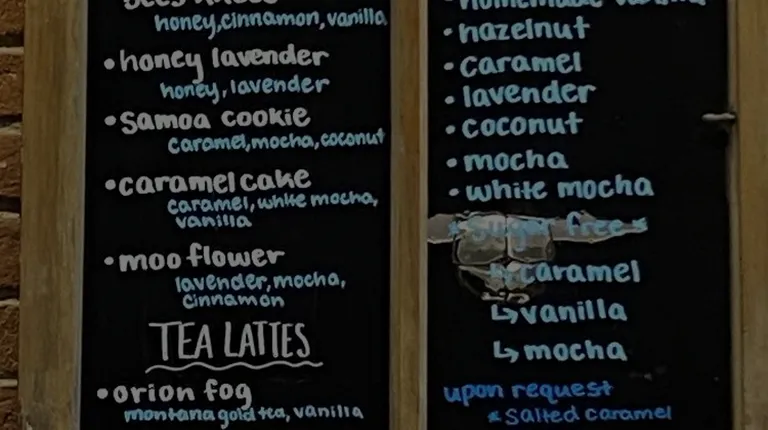 honey, cinnamon, vanilla
• honey lavender
honey, lavender
• samoa cookie
caramel, mocha, coconut
• caramel cake
caramel, white mocha,
vanilla
• moo flower
lavender, mocha,
cinnamon
TEA LATTES
• orion fog
montana gold tea, vanilla
• hazelnut
• caramel
• lavender
• coconut
• mocha
• white mocha
* sugar free *
↳ caramel
↳ vanilla
↳ mocha
upon request
* salted caramel